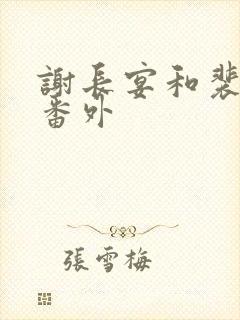 謝長宴和裴
番外
張雪梅